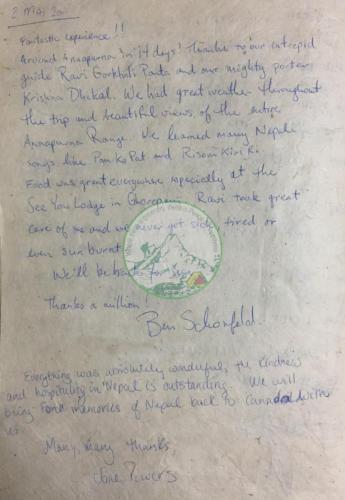 2 Mai 200
Fantastic experience!!
Around Annapurna in 14 days! Thanks to our intrepid
guide Ravi Gorkhali Panta and our mighty porter
Krishna Dhikal. We had great weather throughout
the trip and beautiful views of the entire
Annapurna Range. We learned many Nepali
songs like Pan Ko Pat and Risom Kiri Ri.
Food was great everywhere especially at the
See You Lodge in Ghorepani. Ravi took great
care of me and we never got sick, tired or
even sunburnt.
We'll be back for
Thanks a million!
Ben Schonfeld.
Everything was absolutely wonderful, the kindness
and hospitality in Nepal is outstanding. We will
bring fond memories of Nepal back to Canada with
us.
Many, many thanks,
Jane Powers